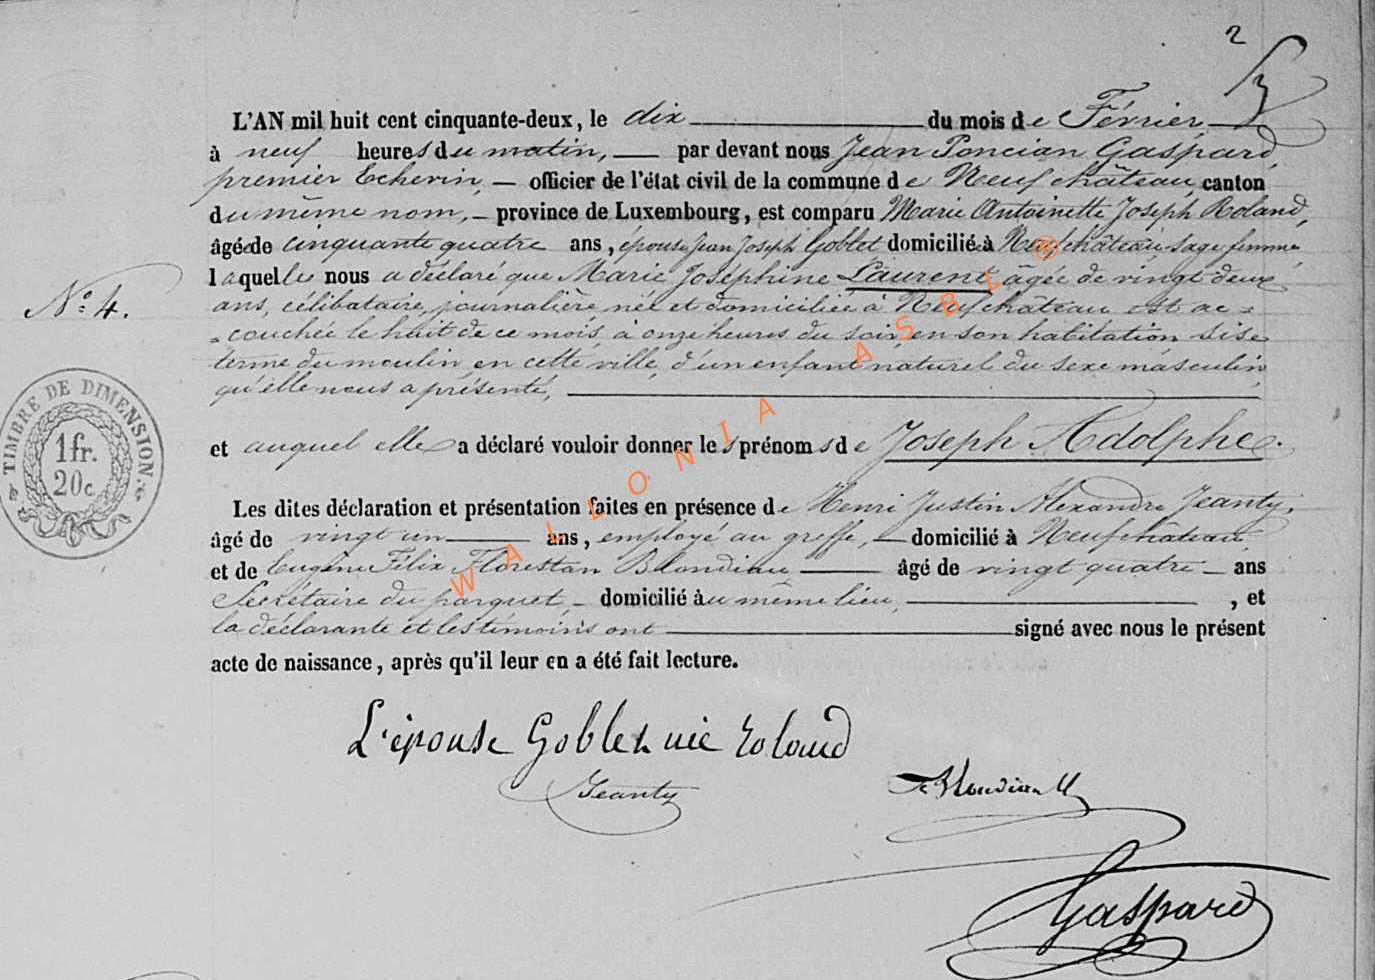 2
L'AN mil huit cent cinquante-deux, le dix du mois de Février
à neuf heures du matin, par devant nous Jean Poncian Gaspard,
premier Echevin, officier de l'état civil de la commune de Neufchâteau, canton
du même nom, province de Luxembourg, est comparu Marie Antoinette Joseph Roland,
âgée de cinquante quatre ans, épouse Jean Joseph Goblet domiciliée à Neufchâteau, sage femme,
laquelle nous a déclaré que Marie Joséphine Laurent âgée de vingt deux
ans, célibataire, journalière née et domiciliée à Neufchâteau est ac=
N° 4.
=couchée le huit de ce mois, à onze heures du soir, en son habitation sise
terme du moulin en cette ville, d'un enfant naturel du sexe masculin
qu'elle nous a présenté,
TIMBRE DE DIMENSION.
1 fr.
20 c
et auquel elle a déclaré vouloir donner les prénoms de Joseph Adolphe.
Les dites déclaration et présentation faites en présence de Henri Justin Alexandre Jeanty,
âgé de vingt un ans, employé au greffe, domicilié à Neufchâteau
et de Eugène Félix Florestan Blondiau âgé de vingt quatre ans
Secrétaire du parquet, domicilié au même lieu, , et
la déclarante et les témoins ont signé avec nous le présent
acte de naissance, après qu'il leur en a été fait lecture.
WALLONIA ASBL ®
L'épouse Goblet née Roland
Jeanty
Blondiau
Gaspard